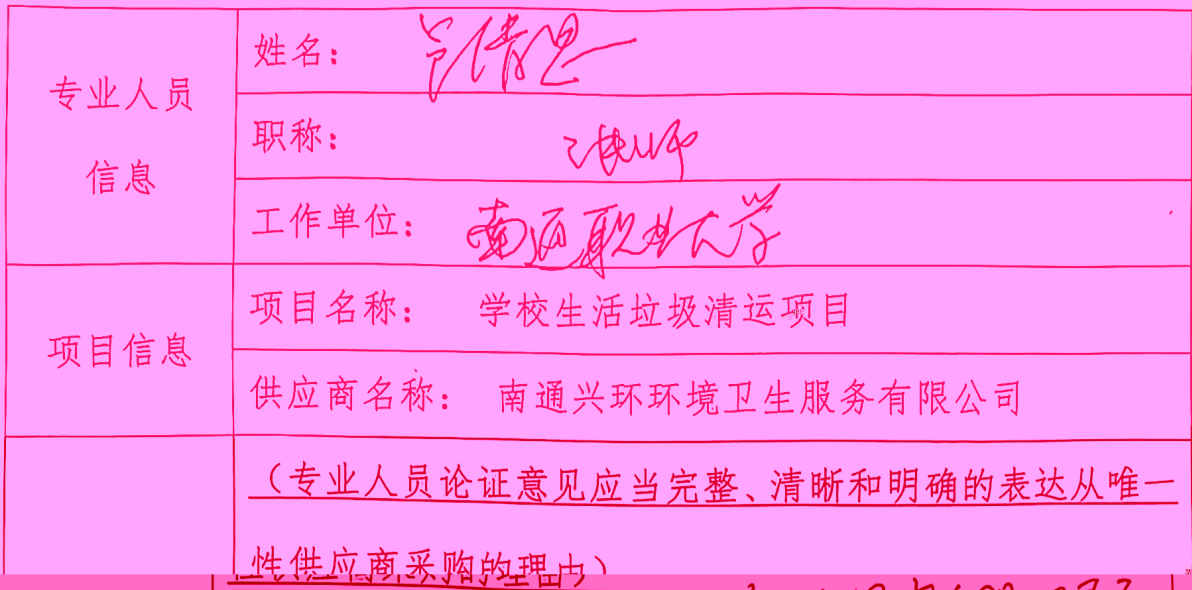 专业人员
信息
姓名：
职称： 讲师
工作单位： 南通职业大学
项目信息
项目名称： 学校生活垃圾清运项目
供应商名称： 南通兴环环境卫生服务有限公司
（专业人员论证意见应当完整、清晰和明确的表达从唯一
性供应商采购的理由）